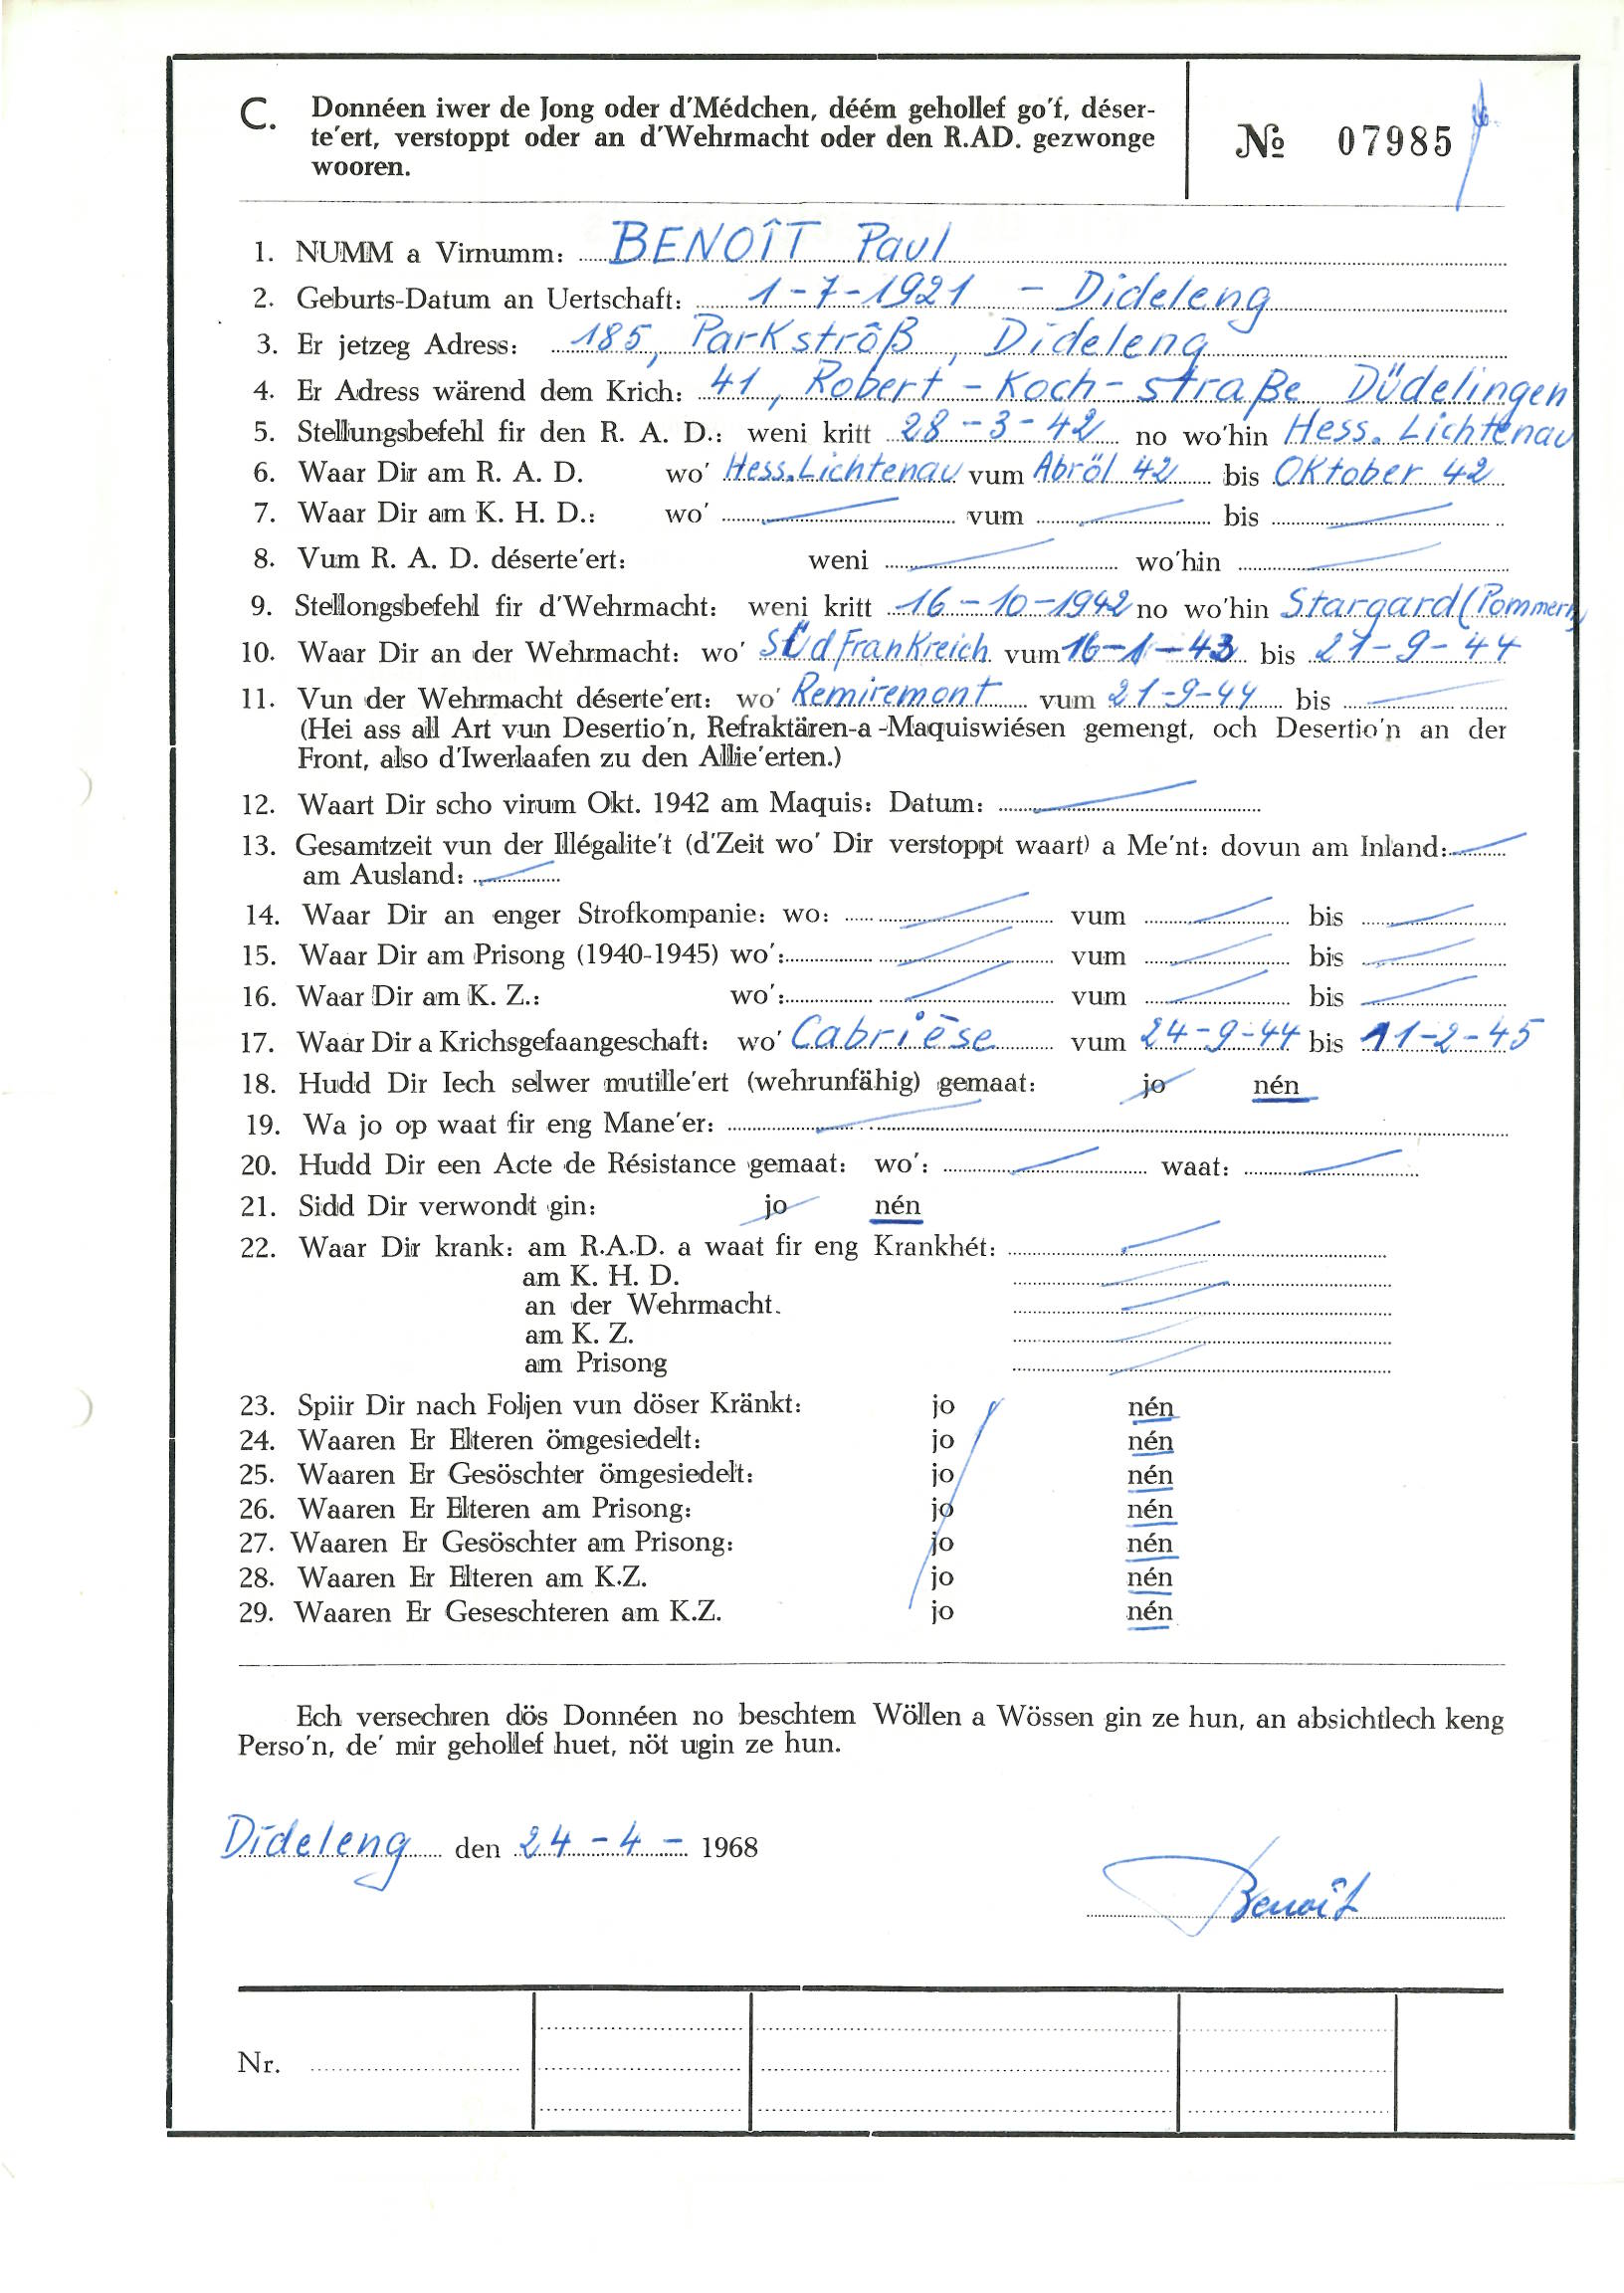 C. Donnéen iwer de Jong oder d'Médchen, déém gehollef go'f, déser-
te'ert, verstoppt oder an d'Wehrmacht oder den R.AD. gezwonge
wooren.
№ 07985
1. NUMM a Virnumm: BENOÎT Paul
2. Geburts-Datum an Uertschaft: 1-7-1921 - Dideleng
3. Er jetzeg Adress: 185, Parkströß, Dideleng
4. Er Adress wärend dem Krich: 41, Robert-Koch-straße Düdelingen
5. Stellungsbefehl fir den R. A. D.: weni kritt 28-3-42 no wo'hin Hess. Lichtenau
6. Waar Dir am R. A. D. wo' Hess.Lichtenau vum Abröl 42 bis Oktober 42
7. Waar Dir am K. H. D.: wo' vum bis
8. Vum R. A. D. déserte'ert: weni wo'hin
9. Stellongsbefehl fir d'Wehrmacht: weni kritt 16-10-1942 no wo'hin Stargard (Pommern)
10. Waar Dir an der Wehrmacht: wo' Südfrankreich vum 16-1-43 bis 21-9-44
11. Vun der Wehrmacht déserte'ert: wo' Remiremont vum 21-9-44 bis
(Hei ass all Art vun Desertio'n, Refraktären-a-Maquiswiésen gemengt, och Desertio'n an der
Front, also d'Iwerlaafen zu den Allie'erten.)
12. Waart Dir scho virum Okt. 1942 am Maquis: Datum:
13. Gesamtzeit vun der Illégalite't (d'Zeit wo' Dir verstoppt waart) a Me'nt: dovun am Inland:
am Ausland:
14. Waar Dir an enger Strofkompanie: wo: vum bis
15. Waar Dir am Prisong (1940-1945) wo': vum bis
16. Waar Dir am K. Z.: wo': vum bis
17. Waar Dir a Krichsgefaangeschaft: wo' Cabrièse vum 24-9-44 bis 11-2-45
18. Hudd Dir Iech selwer mutille'ert (wehrunfähig) gemaat: jo nén
19. Wa jo op waat fir eng Mane'er:
20. Hudd Dir een Acte de Résistance gemaat: wo': waat:
21. Sidd Dir verwondt gin: jo nén
22. Waar Dir krank: am R.A.D. a waat fir eng Krankhét:
am K. H. D.
an der Wehrmacht.
am K. Z.
am Prisong
23. Spiir Dir nach Foljen vun döser Kränkt: jo nén
24. Waaren Er Elteren ömgesiedelt: jo nén
25. Waaren Er Gesöschter ömgesiedelt: jo nén
26. Waaren Er Elteren am Prisong: jo nén
27. Waaren Er Gesöschter am Prisong: jo nén
28. Waaren Er Elteren am K.Z. jo nén
29. Waaren Er Geseschteren am K.Z. jo nén
Ech versechren dös Donnéen no beschtem Wöllen a Wössen gin ze hun, an absichtlech keng
Perso'n, de' mir gehollef huet, nöt ugin ze hun.
Dideleng den 24-4- 1968
Benoît
Nr.